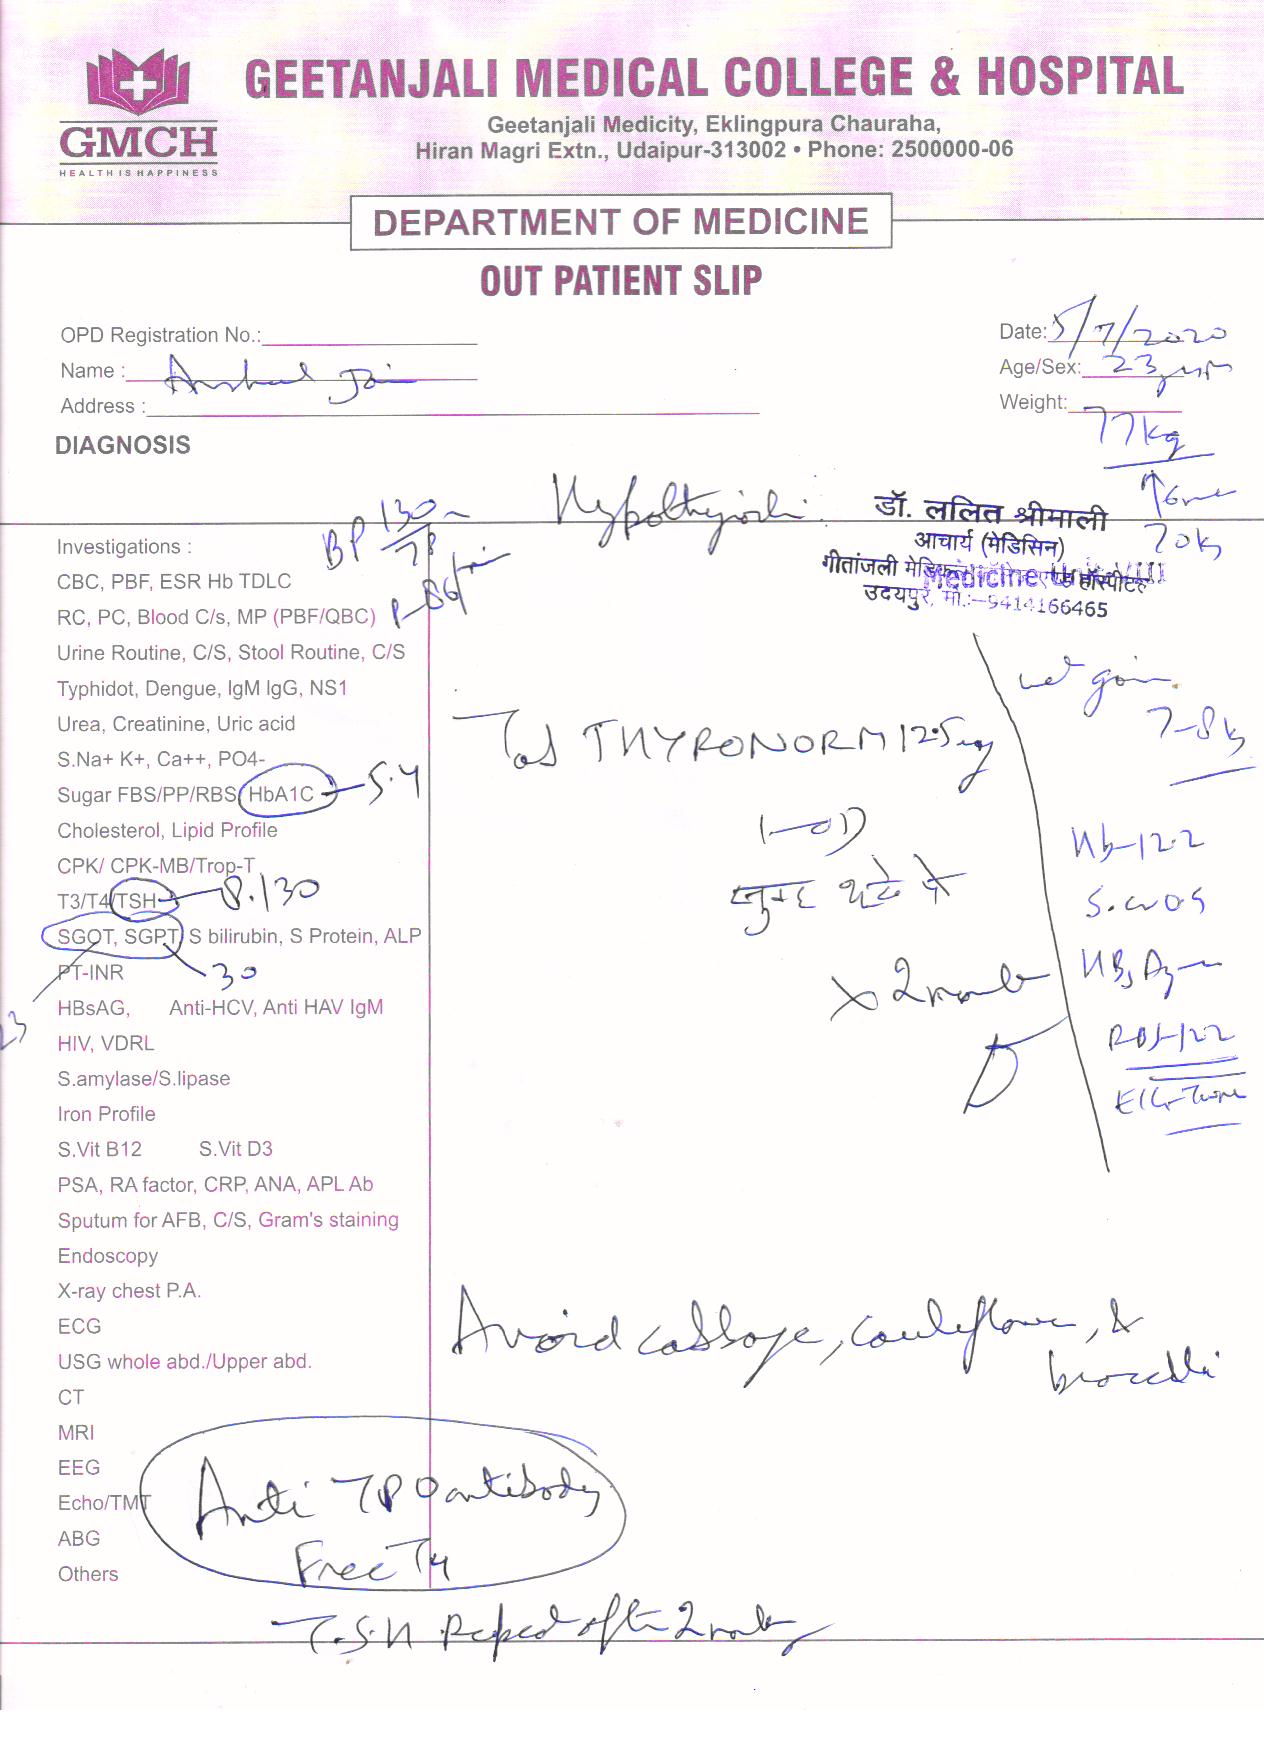 GEETANJALI MEDICAL COLLEGE & HOSPITAL
Geetanjali Medicity, Eklingpura Chauraha,
Hiran Magri Extn., Udaipur-313002 • Phone: 2500000-06
GMCH
HEALTH IS HAPPINESS
DEPARTMENT OF MEDICINE
OUT PATIENT SLIP
OPD Registration No.:
Date: 5/7/2020
Name : Anshul Jain
Age/Sex: 23 years
Address :
Weight: 77 kg
DIAGNOSIS
↑ 6
70 kg
BP 130/78
P-86/min
डॉ. ललित श्रीमाली
आचार्य (मेडिसिन)
गीतांजली मेडिकल हॉस्पीटल
Medicine Unit VIII
उदयपुर, मो.:-9414166465
Investigations :
CBC, PBF, ESR Hb TDLC
RC, PC, Blood C/s, MP (PBF/QBC)
Urine Routine, C/S, Stool Routine, C/S
Typhidot, Dengue, IgM IgG, NS1
Urea, Creatinine, Uric acid
S.Na+ K+, Ca++, PO4-
Sugar FBS/PP/RBS/HbA1C 5.4
Cholesterol, Lipid Profile
CPK/ CPK-MB/Trop-T
T3/T4/TSH 8.130
SGOT, SGPT, S bilirubin, S Protein, ALP
PT-INR 30
HBsAG, Anti-HCV, Anti HAV IgM
23
HIV, VDRL
S.amylase/S.lipase
Iron Profile
S.Vit B12 S.Vit D3
PSA, RA factor, CRP, ANA, APL Ab
Sputum for AFB, C/S, Gram's staining
Endoscopy
X-ray chest P.A.
ECG
USG whole abd./Upper abd.
CT
MRI
EEG
Echo/TMT
ABG
Others
Tab THYRONORM 12.5 mg
1-OD
x 2 month
wt gain
7-8 kg
Hb-12.2
HBsAg
RBS-122
Avoid cabbage, cauliflower, &
broccoli
Anti TPO antibody
Free T4
T.S.H Repeat after 2 months